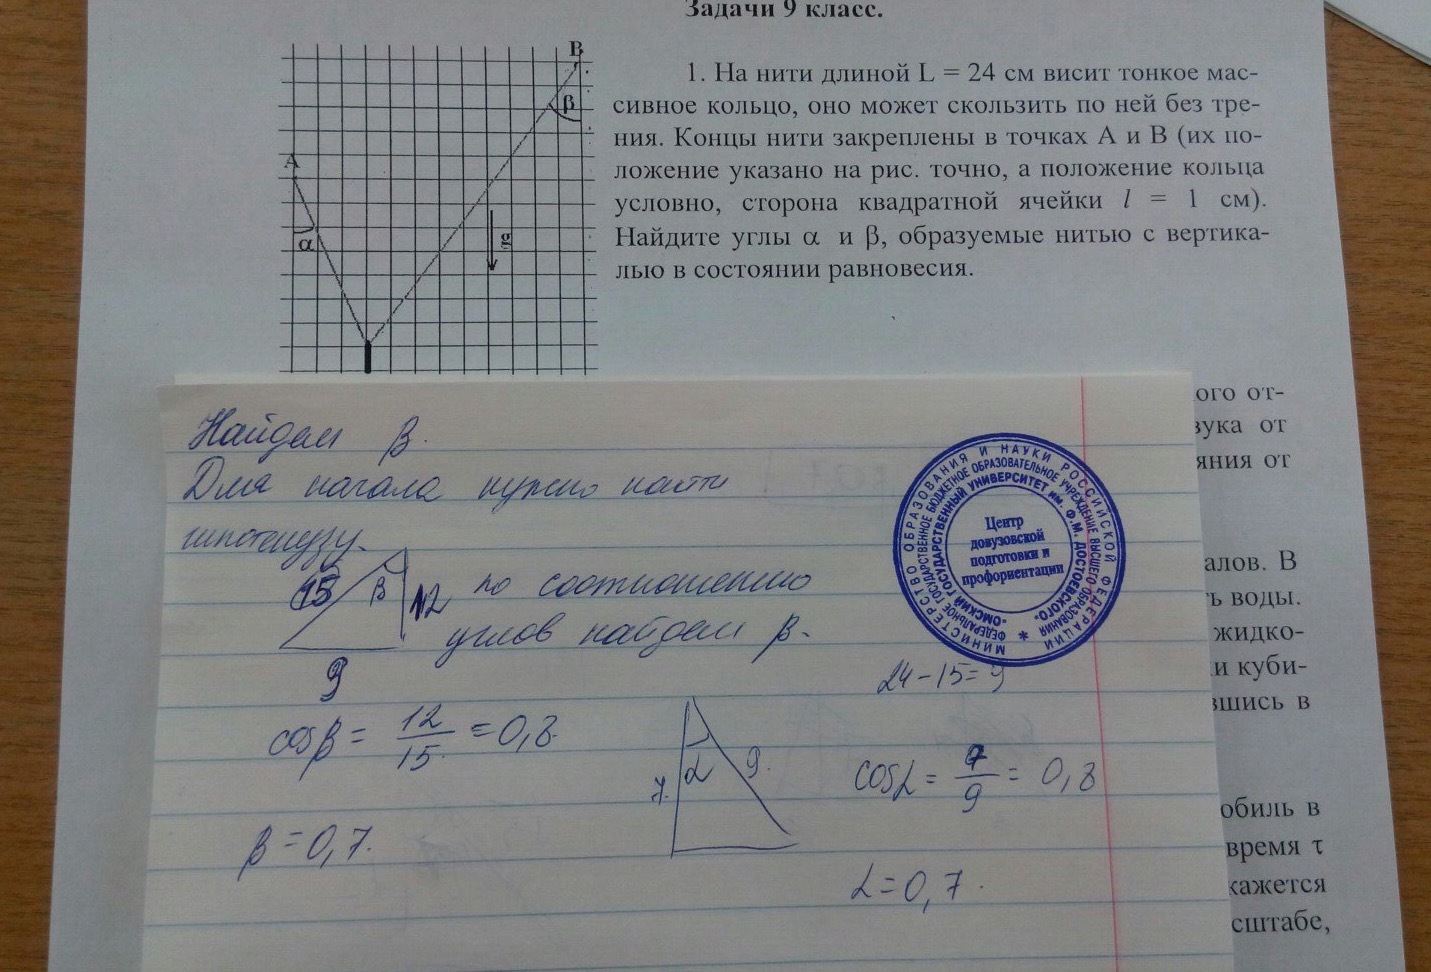 Задачи 9 класс.
B
β
A
α
g
1. На нити длиной L = 24 см висит тонкое мас-
сивное кольцо, оно может скользить по ней без тре-
ния. Концы нити закреплены в точках А и В (их по-
ложение указано на рис. точно, а положение кольца
условно, сторона квадратной ячейки l = 1 см).
Найдите углы α и β, образуемые нитью с вертика-
лью в состоянии равновесия.
ого от-
вука от
яния от
алов. В
ь воды.
жидко-
и куби-
вшись в
обиль в
время τ
кажется
сштабе,
Найдем β.
Для начала нужно найти
гипотенузу.
15 β 12
9
по соотношению
углов найдем β.
24-15=9
cosβ = 12/15 = 0,8
β = 0,7.
7. α 9.
cosα = 7/9 = 0,8
α = 0,7.
МИНИСТЕРСТВО ОБРАЗОВАНИЯ И НАУКИ РОССИЙСКОЙ ФЕДЕРАЦИИ
ФЕДЕРАЛЬНОЕ ГОСУДАРСТВЕННОЕ БЮДЖЕТНОЕ ОБРАЗОВАТЕЛЬНОЕ УЧРЕЖДЕНИЕ ВЫСШЕГО ОБРАЗОВАНИЯ
"ОМСКИЙ ГОСУДАРСТВЕННЫЙ УНИВЕРСИТЕТ им. Ф.М. ДОСТОЕВСКОГО"
Центр
довузовской
подготовки и
профориентации